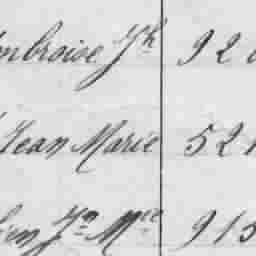 mbroise Jh 92
Jean Marie 521
en Jn Mie 915